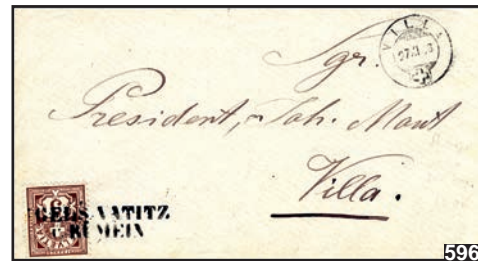 VILLA
Sgr.
President, Joh. Mont
Villa.
VATITZ
RUMEIN
596